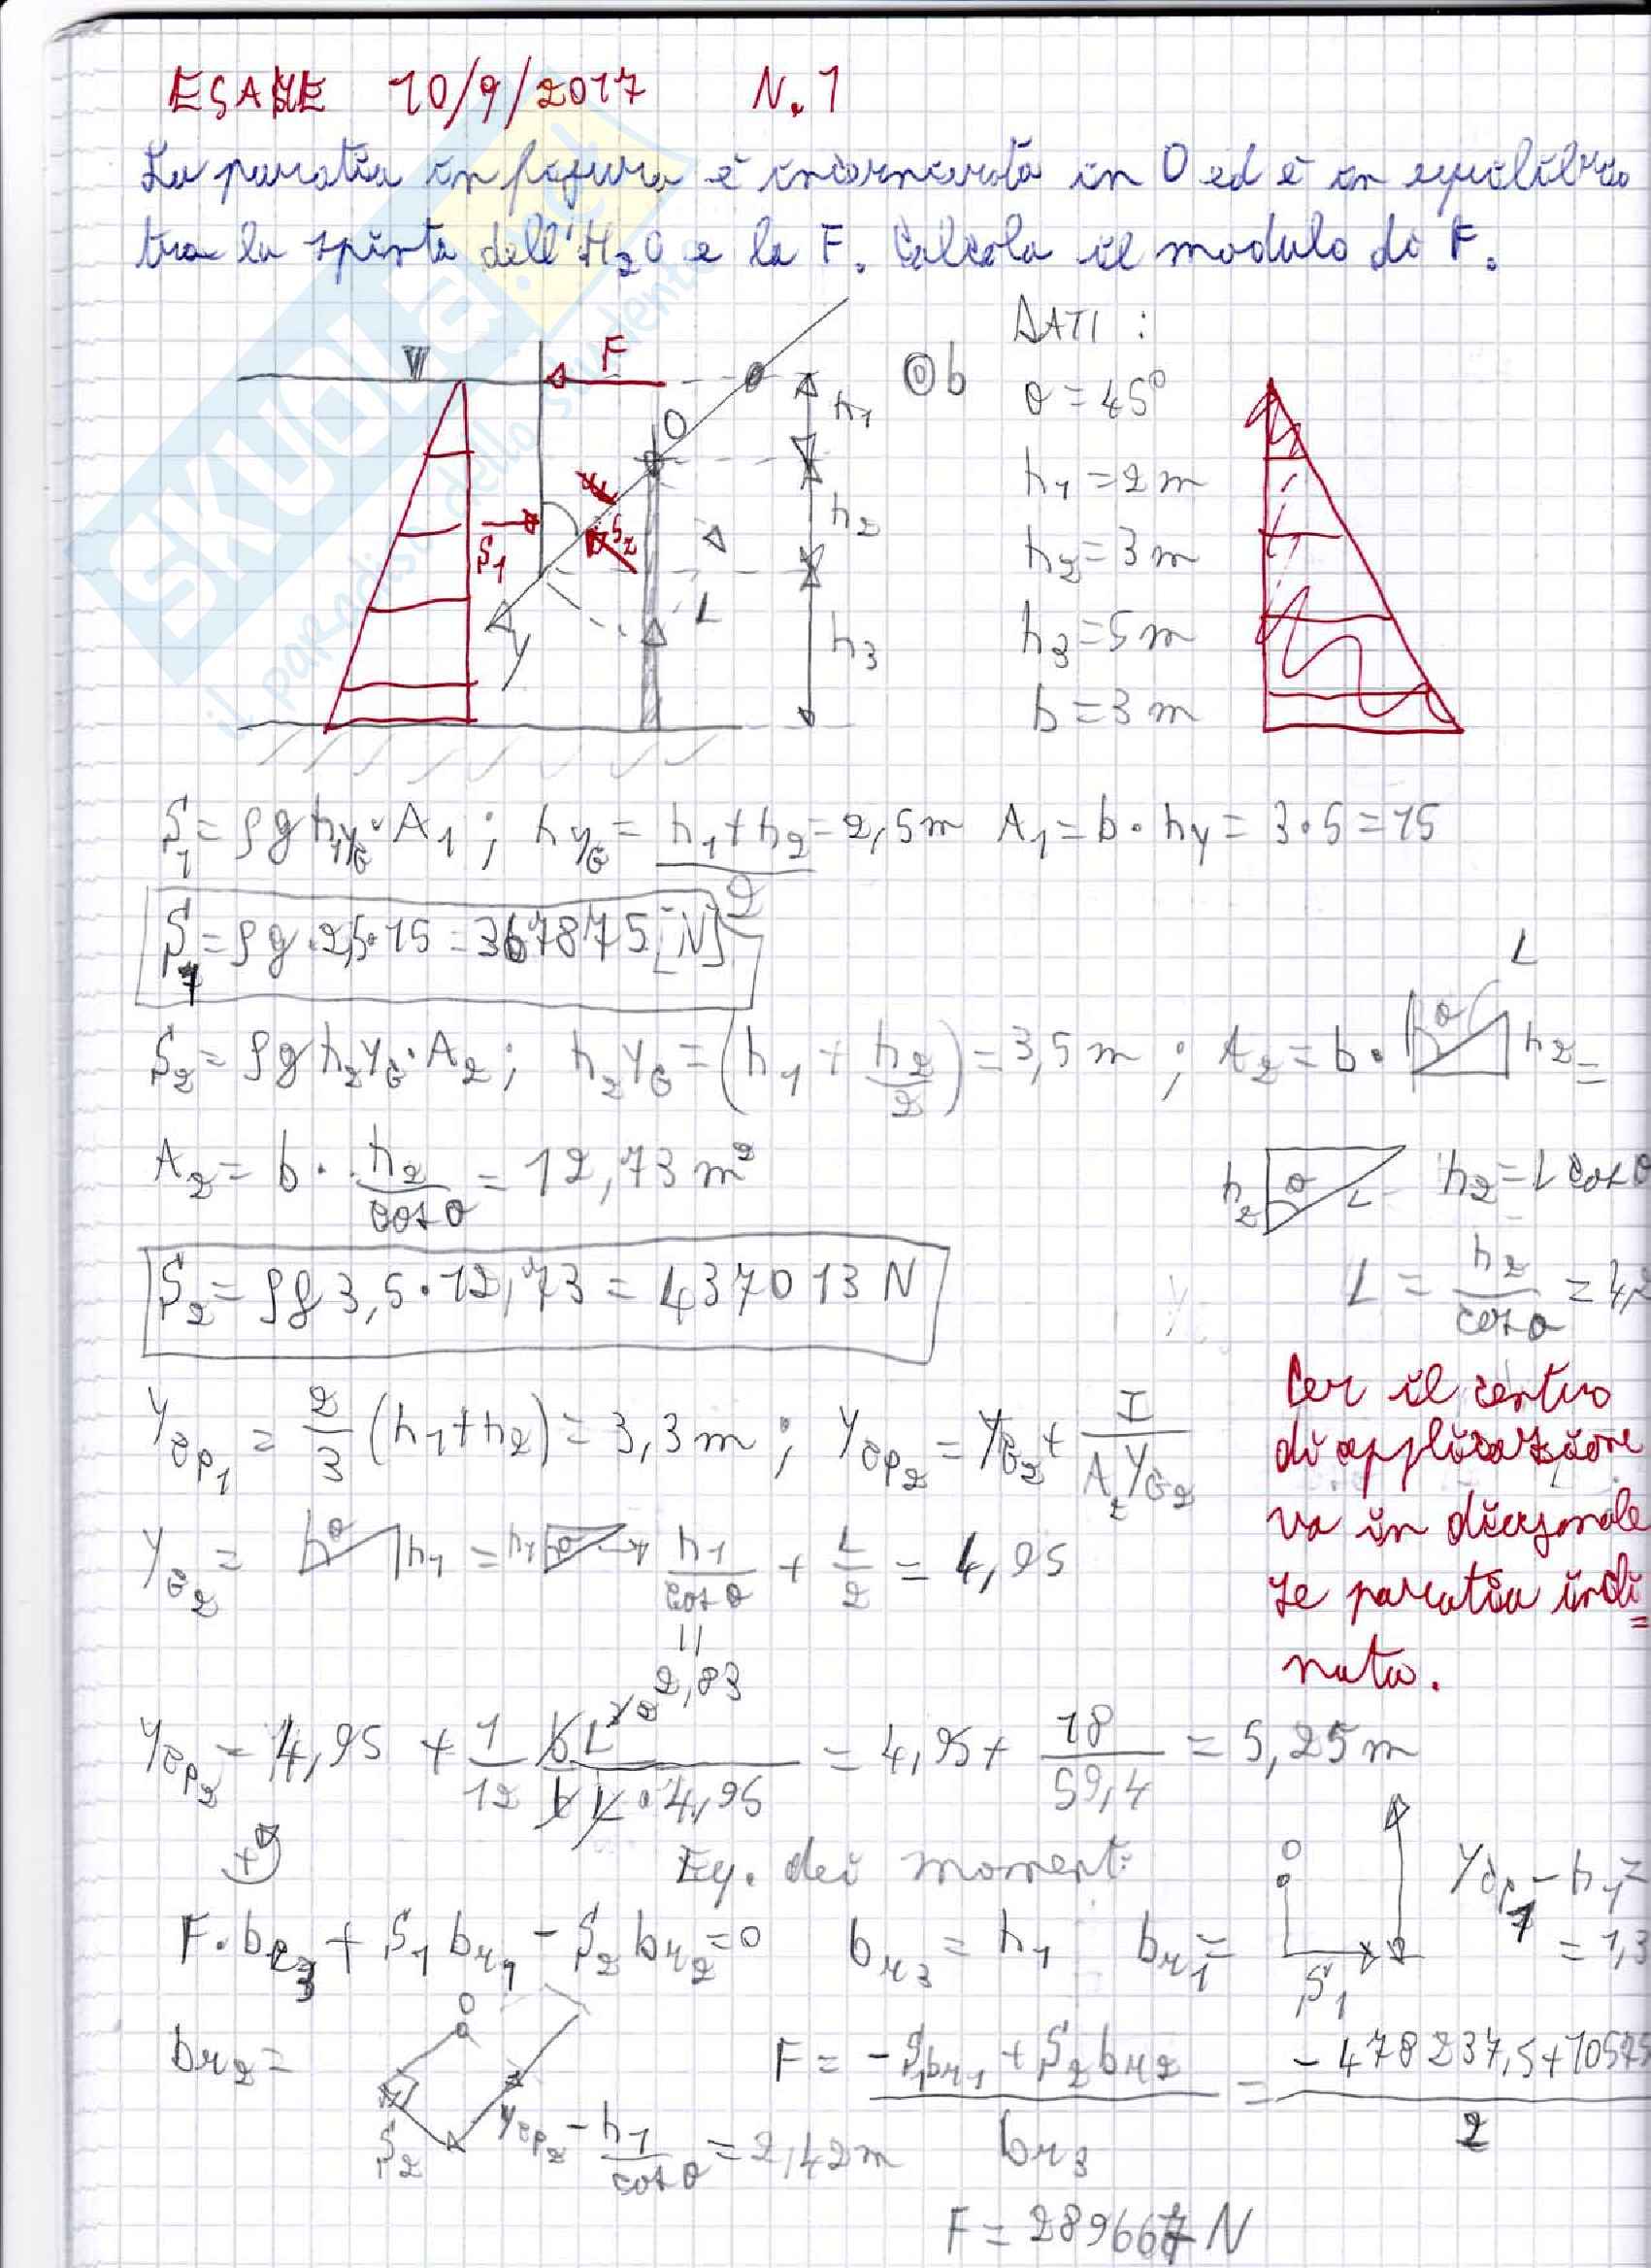 ESAME 10/9/2017 N. 1
La paratia in figura è incernierata in O ed è in equilibrio
tra la spinta dell'H₂O e la F. Calcola il modulo di F.
SKUOLA.net
il paradiso dello studente
F
O
S₁
S₂
y
L
h₁
h₂
h₃
b
DATI :
θ = 45°
h₁ = 2 m
h₂ = 3 m
h₃ = 5 m
b = 3 m
S₁ = ρg h₁y_G · A₁ ; h y_G = (h₁ + h₂)/2 = 2,5 m A₁ = b · hy = 3 · 5 = 15
S₁ = ρg · 2,5 · 15 = 367875 [N]
S₂ = ρg h₂y_G · A₂ ; h₂y_G = (h₁ + h₂/2) = 3,5 m ; A₂ = b · θ L h₂ =
A₂ = b · h₂/cos θ = 12,73 m²
h₂ θ L h₂ = L cos θ
S₂ = ρg 3,5 · 12,73 = 437013 N
L = h₂/cos θ = 4,2
y_cp₁ = 2/3 (h₁ + h₂) = 3,3 m ; y_cp₂ = y_G₂ + I/(A₂ y_G₂)
Per il centro
di applicazione
va in diagonale
se paratia incli=
nata.
y_G₂ = θ h₁ = h₁ θ → h₁/cos θ + L/2 = 4,95
= 2,83
y_cp₂ = 4,95 + 1/12 bL³/(bL · 4,95) = 4,95 + 18/59,4 = 5,25 m
+
Eq. dei momenti
F · br₃ + S₁ br₁ − S₂ br₂ = 0 br₃ = h₁ br₁ = O S₁ y_cp₁ − h₁ = = 1,3
br₂ = O S₂ y_cp₂ − h₁/cos θ = 2,42 m
F = (−S₁br₁ + S₂br₂)/br₃ = (−478237,5 + 10575)/2
F = 289667 N